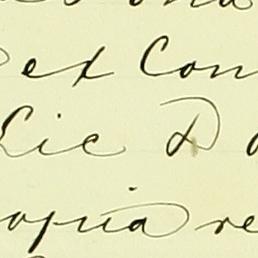 ex Con
Lic D
opia re